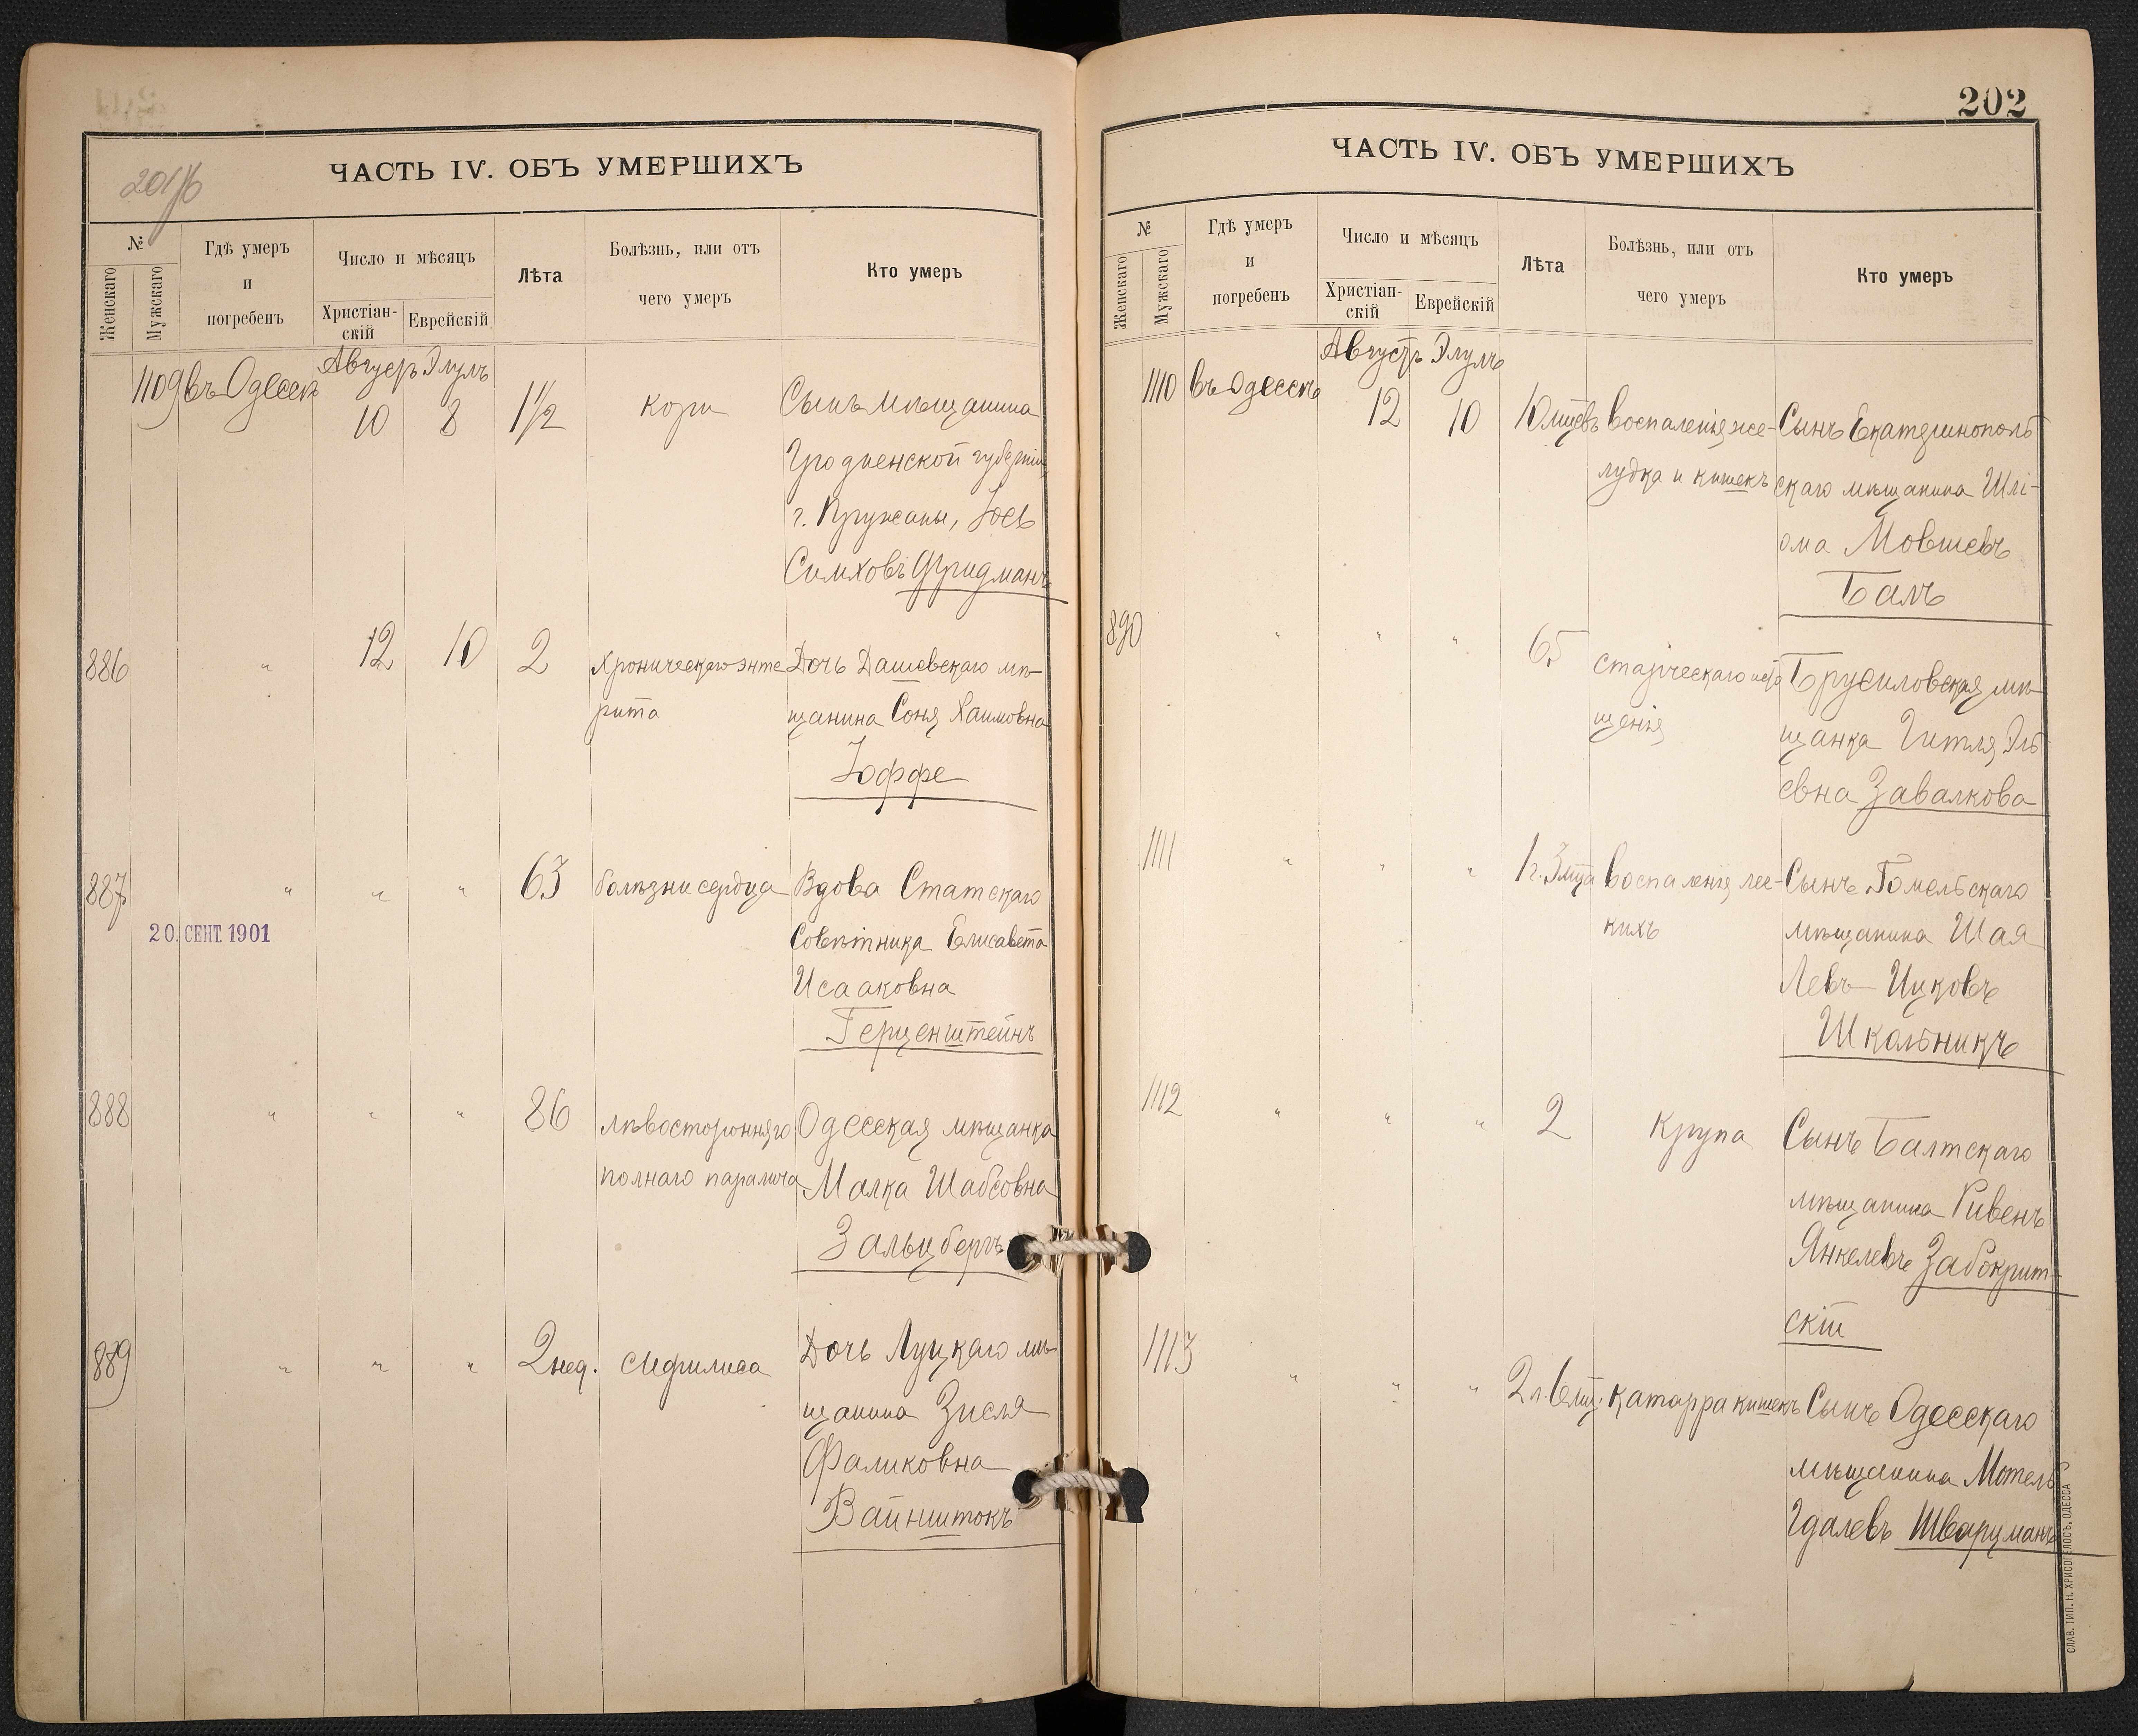 201/б
ЧАСТЬ IV. ОБЪ УМЕРШИХЪ
№
Женскаго
Мужскаго
Гдѣ умеръ
и
погребенъ
Число и мѣсяцъ
Христіан-
скій
Еврейскій
Лѣта
Болѣзнь, или отъ
чего умеръ
Кто умеръ
Августъ Элулъ
1109 въ Одессѣ 10 8 1½ кори Сынъ мѣщанина
Гродненской губерніи
г. Пружаны, Іос
Симховъ Фридманъ
886 " 12 10 2 Хроническаго энте Дочь Дашевскаго мѣ-
рита щанина Соня Хаимовна
Іоффе
887 " " " 63 болѣзни сердца Вдова Статскаго
20. СЕНТ. 1901
Совѣтника Елисавета
Исааковна
Герценштейнъ
888 " " " 86 лѣвосторонняго Одесская мѣщанка
полнаго паралича Малка Шабсовна
Зальцбергъ
889 " " " 2 нед. сифилиса Дочь Луцкаго мѣ-
щанина Зисля
Фаликовна
Вайнштокъ
202
ЧАСТЬ IV. ОБЪ УМЕРШИХЪ
№
Женскаго
Мужскаго
Гдѣ умеръ
и
погребенъ
Число и мѣсяцъ
Христіан-
скій
Еврейскій
Лѣта
Болѣзнь, или отъ
чего умеръ
Кто умеръ
Августъ Элулъ
1110 въ Одессѣ 12 10 10 мцевъ воспаленія же- Сынъ Екатеринополь
лудка и кишекъ скаго мѣщанина Шлі-
ома Мовшевъ
Балъ
890 " " " 65 старческаго исто Брусиловская мѣ-
щенія щанка Гитля Эль
евна Завалкова
1111 " " " 1 г. 3 мца воспаленія лег- Сынъ Гомельскаго
кихъ мѣщанина Шая
Левъ Ицковъ
Школьникъ
1112 " " " 2 Крупа Сынъ Балтскаго
мѣщанина Ривенъ
Янкелевъ Забокрит-
скій
1113 " " " 2 л. 6 мц. катарра кишекъ Сынъ Одесскаго
мѣщанина Мотель
Гдалевъ Шварцманъ
СЛАВ. ТИП. Н. ХРИСОГЕЛОСЪ, ОДЕССА